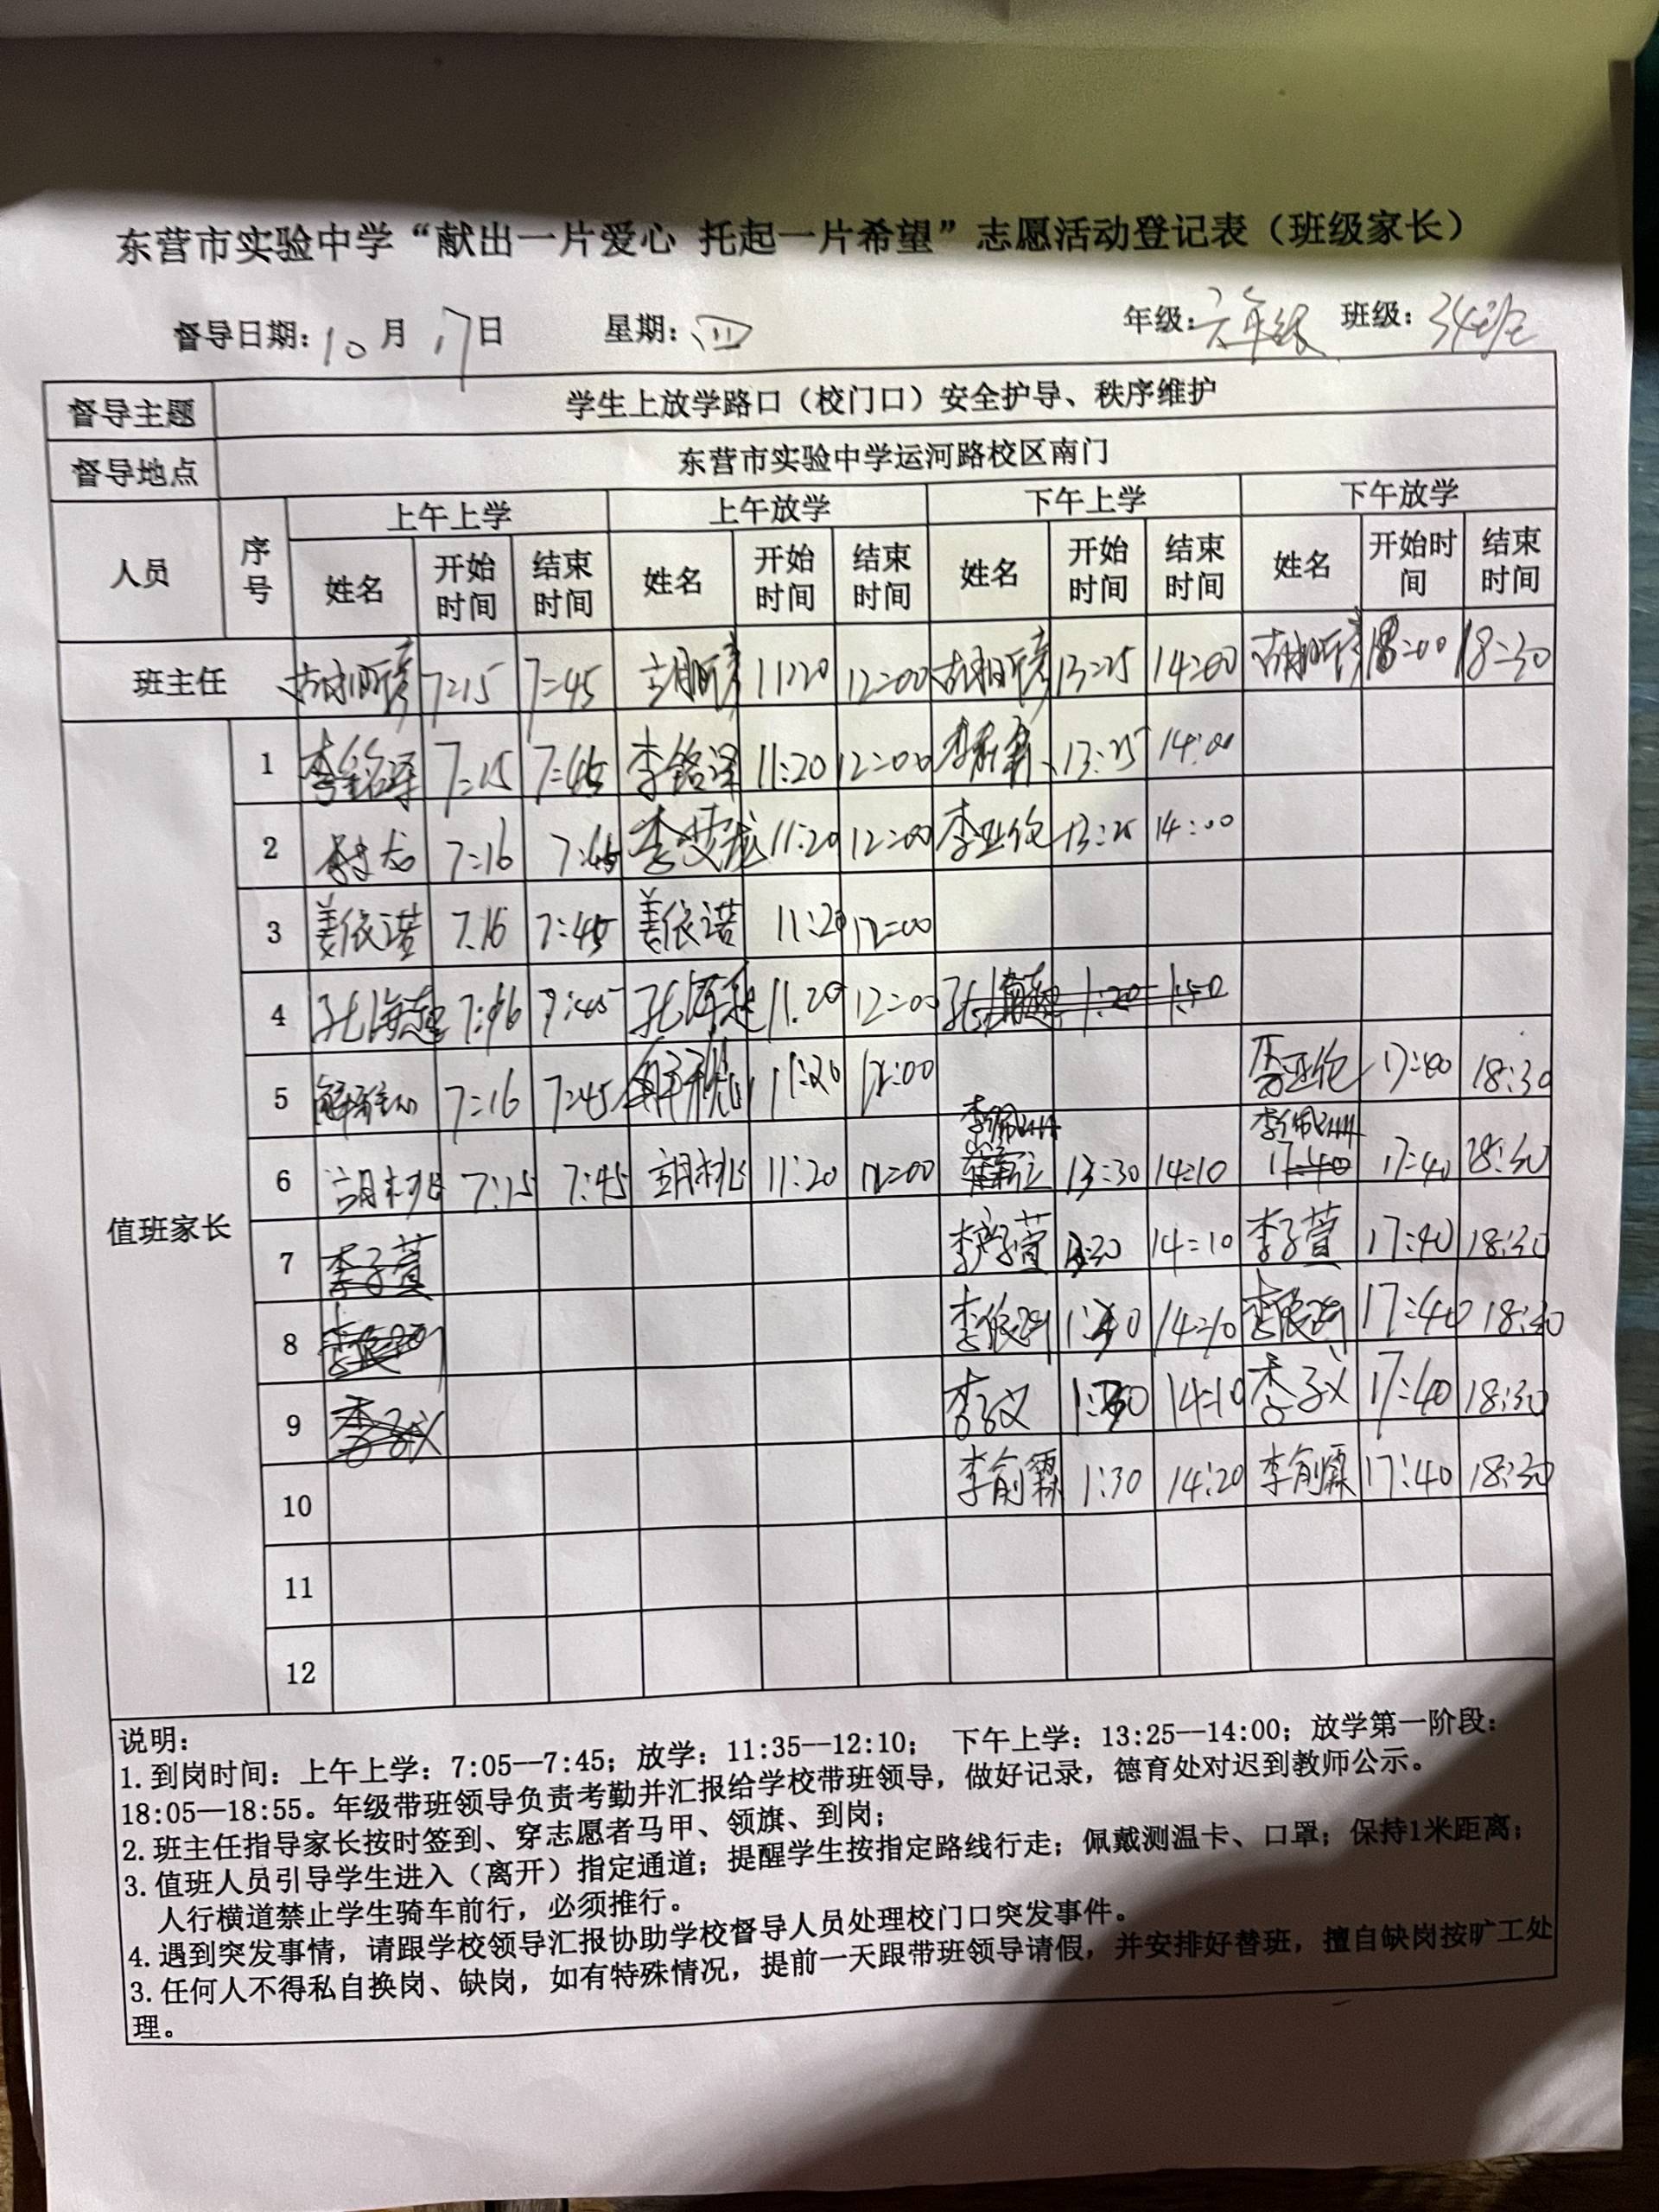 东营市实验中学“献出一片爱心 托起一片希望”志愿活动登记表（班级家长）
督导日期：10月17日 星期：四 年级：六年级 班级：34班
督导主题 学生上放学路口（校门口）安全护导、秩序维护
督导地点 东营市实验中学运河路校区南门
人员 序号 上午上学 上午放学 下午上学 下午放学
姓名 开始时间 结束时间 姓名 开始时间 结束时间 姓名 开始时间 结束时间 姓名 开始时间 结束时间
班主任 7:15 7:45 11:20 12:00 13:25 14:00 18:00 18:30
值班家长
1 李铭泽 7:15 7:45 李铭泽 11:20 12:00 13:25 14:00
2 7:16 7:45 11:20 12:00 李亚伦 13:25 14:00
3 姜依诺 7:16 7:45 姜依诺 11:20 12:00
4 7:16 7:45 11:20 12:00 1:20 1:50
5 7:16 7:45 11:20 12:00 李亚伦 17:40 18:30
6 胡桃 7:15 7:45 胡桃 11:20 12:00 李佩珊 13:30 14:10 李佩珊 17:40 17:40 18:30
7 李子萱 李子萱 1:30 14:10 李子萱 17:40 18:30
8 14:10 17:40 18:30
9 李子义 李子义 14:10 李子义 17:40 18:30
10 李俞霖 1:30 14:20 李俞霖 17:40 18:30
11
12
说明：
1.到岗时间：上午上学：7:05--7:45；放学：11:35--12:10； 下午上学：13:25--14:00；放学第一阶段：
18:05—18:55。年级带班领导负责考勤并汇报给学校带班领导，做好记录，德育处对迟到教师公示。
2.班主任指导家长按时签到、穿志愿者马甲、领旗、到岗；
3.值班人员引导学生进入（离开）指定通道；提醒学生按指定路线行走；佩戴测温卡、口罩；保持1米距离；
人行横道禁止学生骑车前行，必须推行。
4.遇到突发事情，请跟学校领导汇报协助学校督导人员处理校门口突发事件。
3.任何人不得私自换岗、缺岗，如有特殊情况，提前一天跟带班领导请假，并安排好替班，擅自缺岗按旷工处
理。